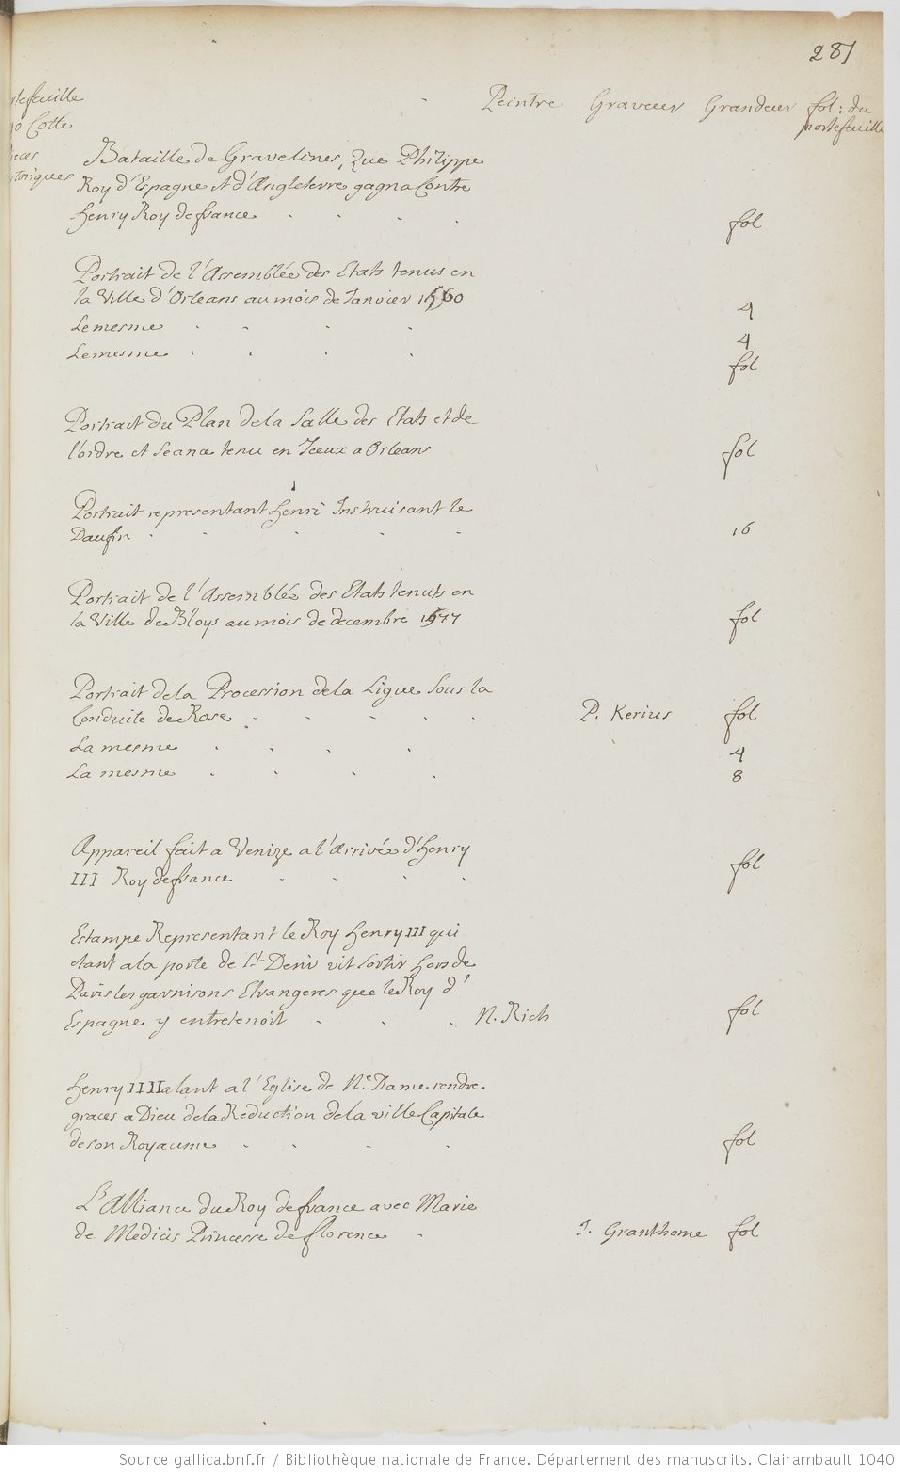 281
Peintre Graveur Grandeur fol: du
portefeuille
Bataille de Gravelines, Que Philippe
Roy d'Espagne et d'Angleterre gagna Contre
Henry Roy de france fol
Portrait de l'Assemblée des Etats tenus en
la Ville d'Orleans au mois de Janvier 1560 4
Le mesme 4
Le mesme fol
Portrait du Plan de la Salle des Etats et de
l'ordre et Seance tenu en Iceux a Orleans fol
Portrait representant Henri Instruisant le
Daufin 16
Portrait de l'Assemblée des Etats tenuts en
la Ville de Bloys au mois de decembre 1577 fol
Portrait de la Procession de la Ligue Sous la
Conduite de Rose P. Kerius fol
La mesme 4
La mesme 8
Appareil fait a Venize a l'Arrivée d'Henry
III Roy de france fol
Estampe Representant le Roy Henry III qui
etant a la porte de St Denis vit sortir hors de
Paris les garnisons Etrangeres que le Roy d'
Espagne y entretenoit N. Rich fol
Henry IIII alant a l'Eglise de Ne Dame rendre
graces a Dieu de la Reduction de la ville Capitale
de son Royaume fol
L'Alliance du Roy de france avec Marie
de Medicis Princesse de florence J. Granthome fol
Source gallica.bnf.fr / Bibliothèque nationale de France. Département des manuscrits. Clairambault 1040